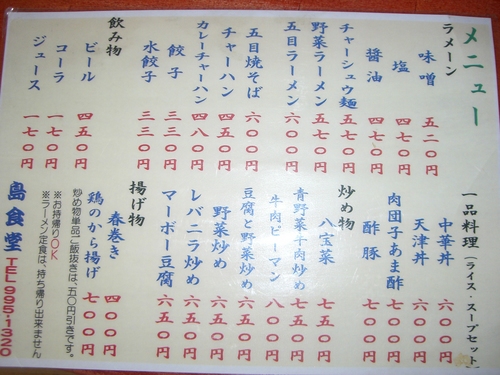 メニュー
ラーメン
味噌 五二〇円
塩 四七〇円
醤油 四七〇円
チャーシュウ麺 五七〇円
野菜ラーメン 五七〇円
五目ラーメン 六〇〇円
五目焼そば 六〇〇円
チャーハン 四五〇円
カレーチャーハン 四八〇円
餃子 三三〇円
水餃子 三三〇円
飲み物
ビール 四五〇円
コーラ 一七〇円
ジュース 一七〇円
一品料理(ライス・スープセット)
中華丼 六〇〇円
天津丼 六〇〇円
肉団子あま酢 七〇〇円
酢豚 七〇〇円
炒め物
八宝菜 七五〇円
青野菜干肉炒め 七五〇円
牛肉ピーマン 八〇〇円
豆腐と野菜炒め 六五〇円
野菜炒め 六五〇円
レバニラ炒め 六五〇円
マーボー豆腐 六五〇円
揚げ物
春巻き 四〇〇円
鶏のから揚げ 七〇〇円
炒め物単品ご飯抜きは、五〇円引きです。
※お持帰りOK
※ラーメン定食は、持ち帰り出来ません
島食堂 TEL995-1320